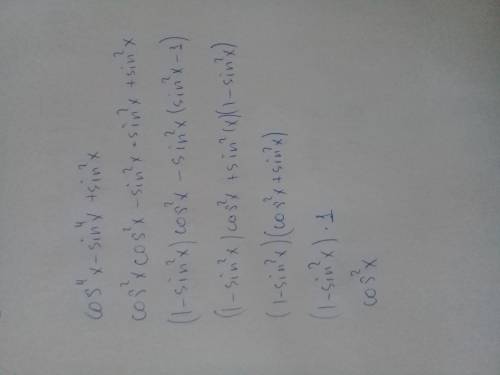 cos⁴x-sin⁴x+sin²x
cos²x cos²x-sin²x·sin²x+sin²x
(1-sin²x)cos²x-sin²x(sin²x-1)
(1-sin²x)cos²x+sin²(x)(1-sin²x)
(1-sin²x)(cos²x+sin²x)
(1-sin²x)·1
cos²x